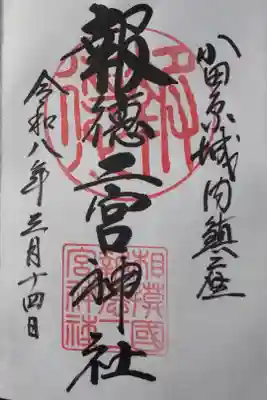 小田原城内鎮座
報徳二宮神社
令和八年三月十四日
報徳
相模國
報徳二
宮神社